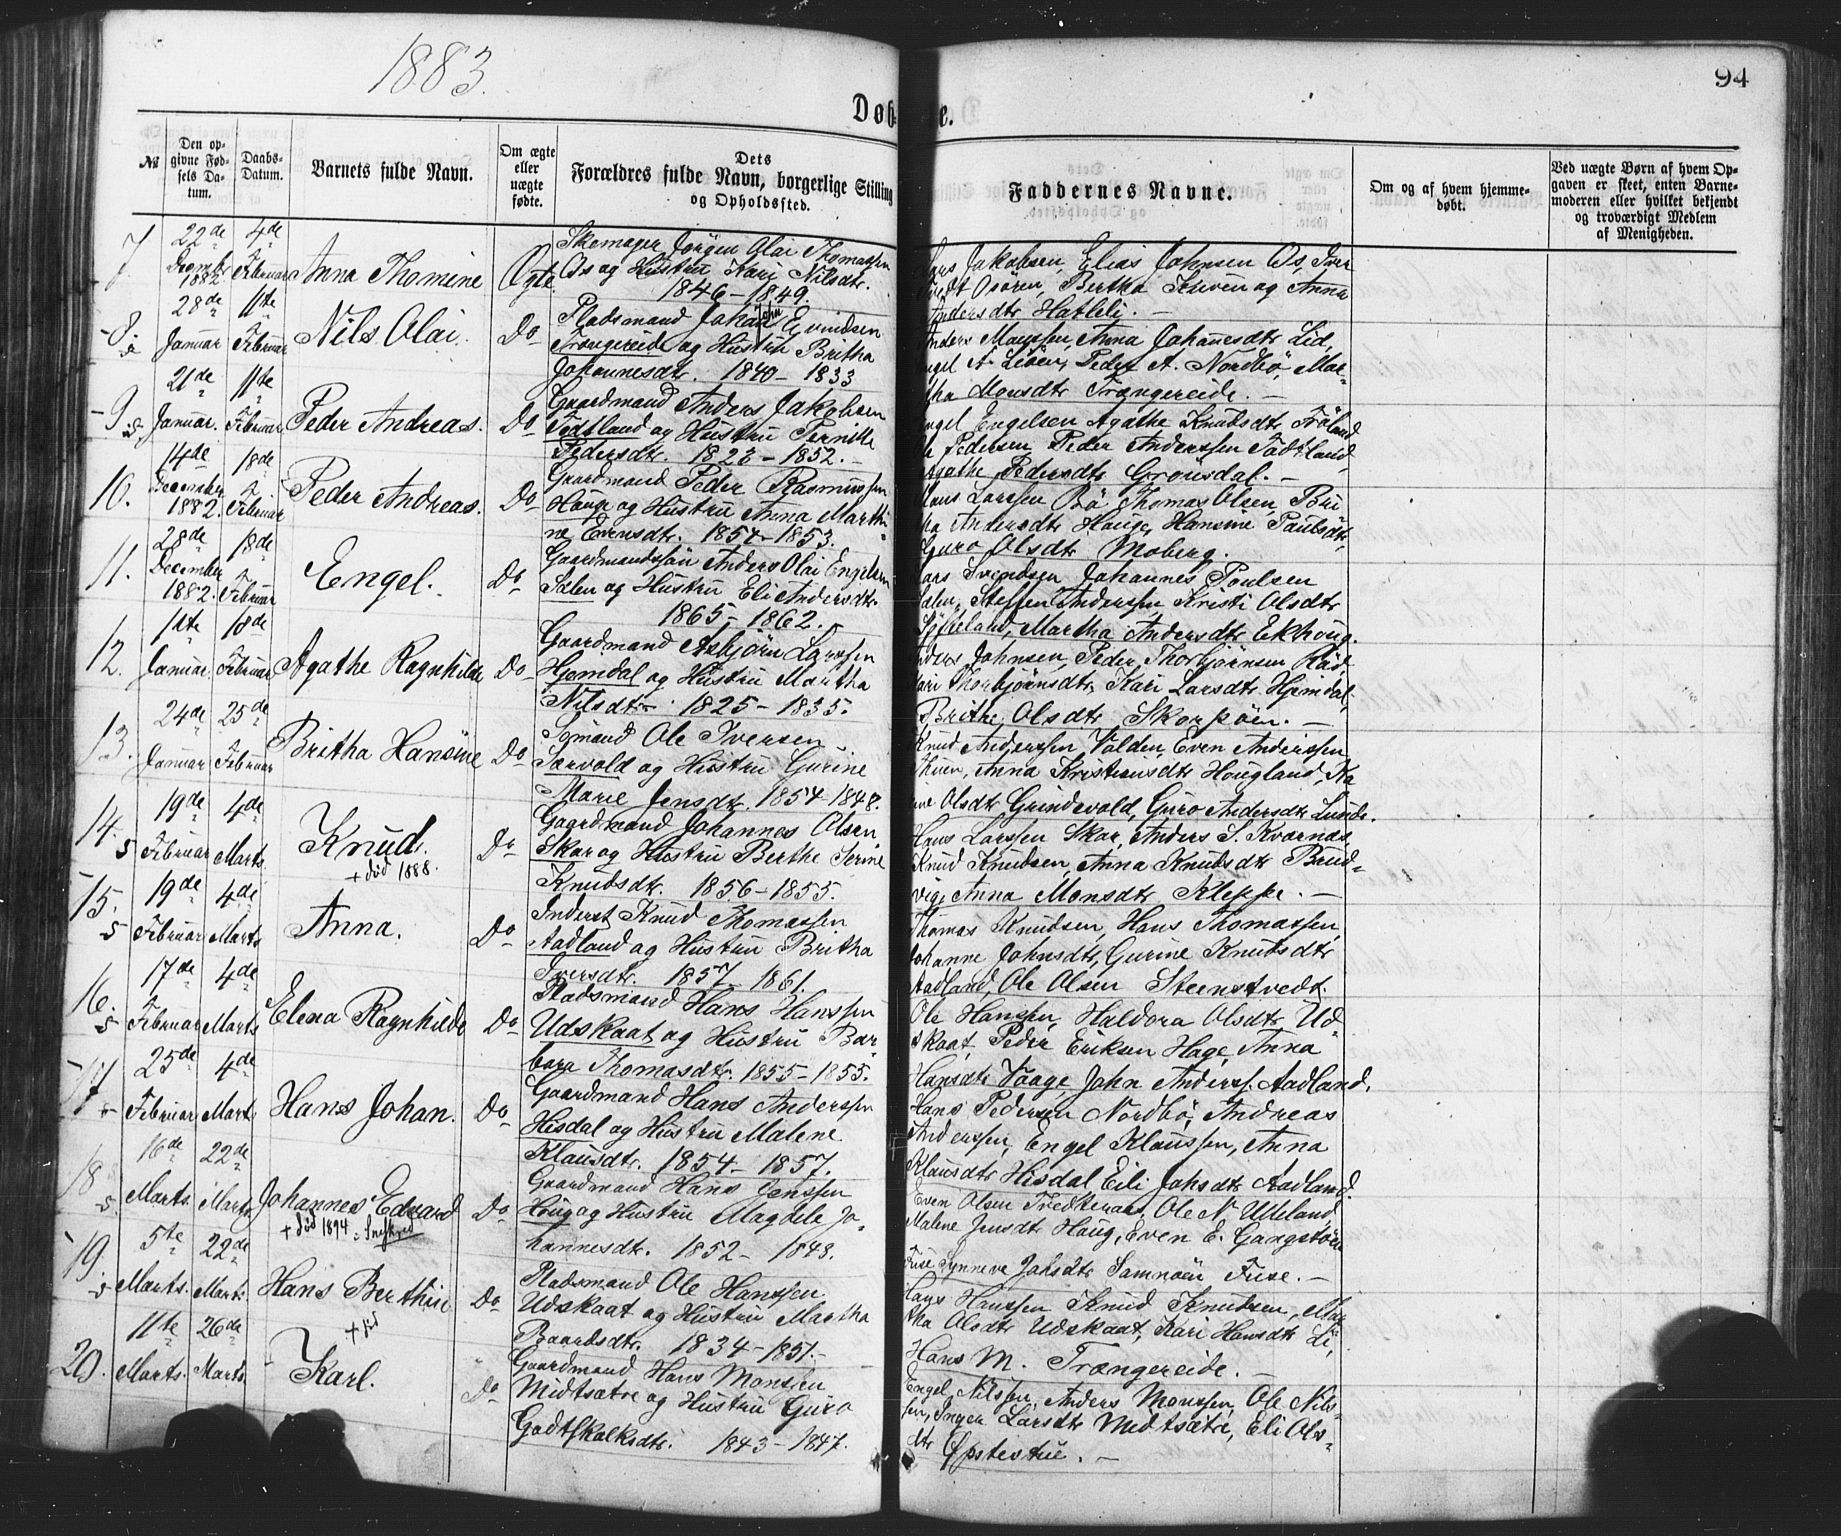 1883.
94
Døbte.
№
Den opgivne Fødsels Datum.
Daabs-Datum.
Barnets fulde Navn.
Om ægte eller uægte fødte.
Dets Forældres fulde Navn, borgerlige Stilling og Opholdssted.
Faddernes Navne.
Om og af hvem hjemmedøbt.
Ved uægte Børn af hvem Opgaven er skeet, enten Barnemoderen eller hvilket bekjendt og troværdigt Medlem af Menigheden.
7
22de Decembr 1882
4de Februar
Anna Thomine
Ægte
Skomager Jørgen Olai Thomassen
Os og Hustru Kari Nilsdtr.
1846 - 1849.
Jakobsen, Elias Johnsen Os, Iver
Osören, Bertha Kuven og Anna
Andersdtr Hatleli. -
8.
28de Januar
11te Februar
Nils Olai.
Do
Pladsmand Johan Eivindsen
Trængereide og Hustru Britha
Johannesdtr. 1840 - 1833
Anders Monssen, Anna Johannesdtr Lid,
Engel A. Peder A. Nordbö, Mar-
tha Monsdtr Trængereide. -
9
21de Januar.
11te Februar
Peder Andreas.
Do
Gaardmand Anders Jakobsen
Tødtland og Hustru Pernille
Pedersdtr. 1823 - 1852. -
Engel Engelsen, Agathe Knudsdtr Fröland
Pedersen, Peder Anderssen Tødtland,
Agathe Pedersdtr Grönsdal. -
10.
14de December 1882.
18de Februar
Peder Andreas.
Do
Gaardmand Peder Rasmussen
Hauge og Hustru Anna Marthi-
ne Evensdtr. 1857 - 1853.
Hans Larssen Bö Thomas Olsen, Bri-
tha Andersdtr Hauge, Hansine Paulsdtr,
Guro Olsdtr Moberg.
11.
28de December 1882.
18de Februar
Engel.
Do
Gaardmandssön Anders Olai Engelsen
Salen og Hustru Eli Andersdtr.
1865 - 1862. -
Lars Svendsen Johannes Poulsen
Salen, Steffen Anderssen, Kristi Olsdtr
Martha Andersdtr Ekhoug.
12.
11te Januar.
18de Februar
Agathe Ragnhilde
Do
Gaardmand Asbjörn Larssen
Hjemdal og Hustru Martha
Nilsdtr. 1825 - 1835.
Anders Johnsen, Peder Thorbjörnsen Röd
Kari Thorbjörnsdtr, Kari Larsdtr Hjemdal,
Brithe Olsdtr Skorpöen. -
13.
24de Januar
25de Februar
Britha Hansine
Do
Sömand Ole Iversen
Sørvold og Hustru Gurine
Marie Jensdtr. 1854 - 1848.
Knud Anderssen Valden, Even Anderssen
Anna Kristensdtr Hougland, Ka-
rine Olsdtr Grindevold, Guro Andersdtr Lunde.
14.
19de Februar
4de Marts
Knud.
+ död 1888.
Do
Gaardmand Johannes Olsen
Skar og Hustru Berthe Serine
Knudsdtr. 1856 - 1855.
Hans Larssen Skar, Anders S. Kvernæs,
Knud Knudsen, Anna Knudsdtr Brud-
vig, Anna Monsdtr Kleppe. -
15.
19de Februar
4de Marts
Anna.
Do
Inderst Knud Thomassen
Aadland og Hustru Britha
Iversdtr. 1857 - 1861.
Thomas Knudsen, Hans Thomassen,
Johanne Johnsdtr, Gurine Knudsdtr
Aadland, Ole Olsen Steenstvedt.
16.
17de Februar
4de Marts
Elena Ragnhilde
Do
Pladsmand Hans Hanssen
Udskaat og Hustru Bar-
bara Thomasdtr. 1855 - 1855.
Ole Hansen, Haldora Olsdtr Ud-
skaat, Peder Eriksen Hage, Anna
Hansdtr Vaage, John Anderss. Aadland.
17
25de Februar
4de Marts
Hans Johan.
Do
Gaardmand Hans Anderssen
Hisdal og Hustru Malene
Klausdtr. 1854 - 1857.
Hans Pedersen Nordbö, Andreas
Anderssen, Engel Klaussen, Anna
Klausdtr Hisdal Eili Johsdtr Aadland.
18
16de Marts.
22de Marts
Johannes Edvard
+ död 1894
Do
Gaardmand Hans Jenssen
Houg og Hustru Magdele Jo-
hannesdtr. 1852 - 1848.
Even Olsen Ole N. Uleland
Malene Jensdtr Houg, Even E. Gangstöen
Fuse Synneve Johsdtr Samnöen Fuse. -
19.
5te Marts.
22de Marts.
Hans Berthin
+ död
Do
Pladsmand Ole Hanssen
Udskaat og Hustru Martha
Baardsdtr. 1834 - 1851. -
Hans Hanssen Knud Knudsen, Mar-
tha Olsdtr Udskaat, Kari Hansdtr Li,
Hans M. Trængereide. -
20.
11te Marts.
26de Marts.
Karl.
Do
Gaardmand Hans Monssen
Midtsætre og Hustru Guro
Godtskalksdtr. 1843 - 1847.
Engel Nilssen, Anders Monssen, Ole Nils-
sen, Inger Larsdtr Midtsætre, Eli Ols-
dtr Øpstestue. -